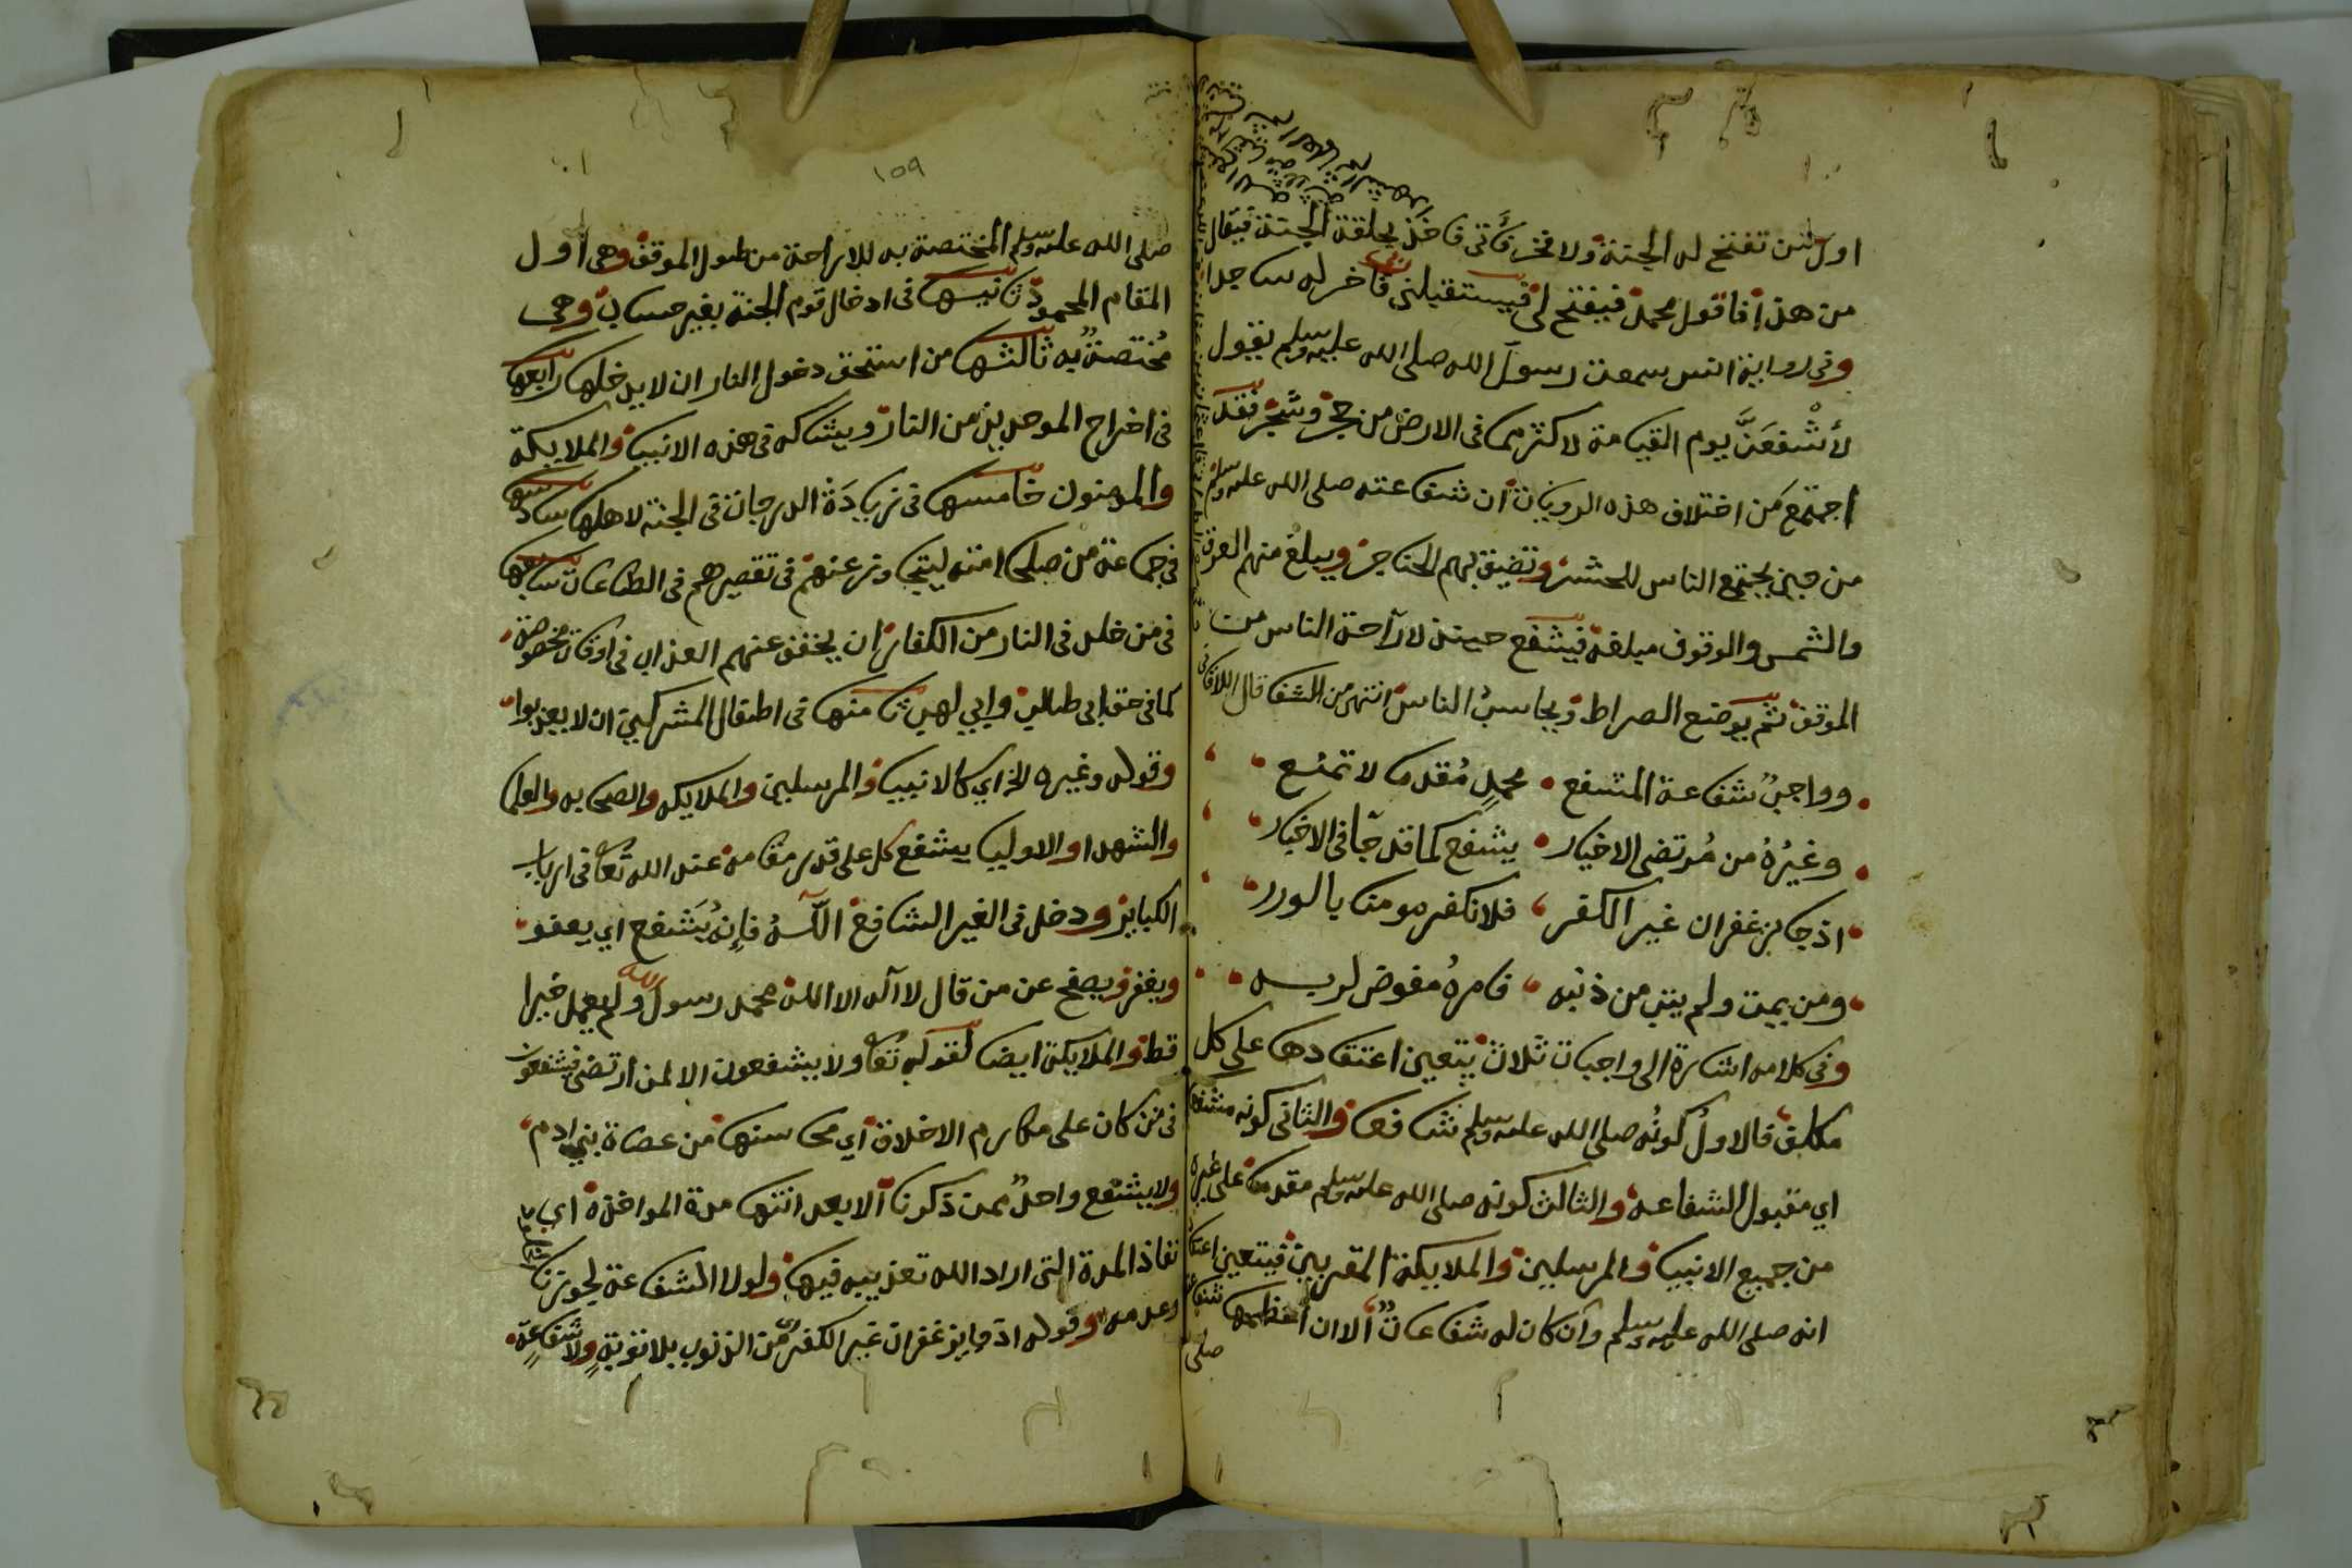 اول من تفتح له الجنة ولا فخر فآتي فاخذ بحلقة الجنة فيقال
من هذا فاقول محمد فيفتح لي فيستقبلني ربي فاخر له ساجدا
وفي رواية انس سمعت رسول الله صلى الله عليه وسلم يقول
لأشفعنَّ يوم القيامة لاكثر مما في الارض من حجر وشجر فقد
اجتمع من اختلاف هذه الرويات ان شفاعته صلى الله عليه وسلم
من حين يجتمع الناس للمحشر وتضيق بهم الحناجر ويبلغ منهم العرق
والشمس والوقوف مبلغه فيشفع حينئذ لاراحة الناس من
الموقف ثم يوضع الصراط ويحاسب الناس انتهى من الشفا قال اللاقاني
وواجب شفاعة المشفع محمدٍ مُقدما لا تمنع
وغيرُهُ من مُرتضى الاخيار يشفع كما قد جا في الاخبار
اذ جايز غفران غير الكفر فلا نكفر مومنا بالوزر
ومن يمت ولم يتب من ذنبه فامرهُ مفوض لربه
وفي كلامه اشارة الى واجبات ثلاث يتعين اعتقادها على كل
مكلف فالاول كونُه صلى الله عليه وسلم شافعا والثاني كونه مشفعا
اي مقبول الشفاعة والثالث كونه صلى الله عليه وسلم مقدما على غيره
من جميع الانبيا والمرسلين والملايكة المقربين فيتعين اعتقاد
انه صلى الله عليه وسلم وان كان له شفاعات الا ان اعظمها شفاعته
صلى
١٥٩
صلى الله عليه وسلم المختصة به للاراحة من طول الموقف وهي اول
المقام المحمود ثانيها في ادخال قوم الجنة بغير حساب وهي
مُختصةٌ به ثالثها من استحق دخول النار ان لا يدخلها رابعها
في اخراج الموحدين من النار ويشاركه في هذه الانبيا والملايكة
والمومنون خامسها في زيادَة الدرجات في الجنة لاهلها سادسها
في جماعة من صلحا امته ليتجاوز عنهم في تقصيرهم في الطاعات سابعها
في من خلد في النار من الكفار ان يخفف عنهم العذاب في اوقات مخصوصة
كما في حق ابي طالب وابي لهب ثامنها في اطفال المشركين ان لا يعذبوا
وقوله وغيره الخ اي كالانبيا والمرسلين والملايكه والصحابه والعلما
والشهدا والاوليا يشفع كل على قدر مقامه عند الله تعا في ارباب
الكباير ودخل في الغير الشافع اللَّهُ فإنه يَشفع اي يعفو
ويغفر ويصفح عن من قال لا اله الا الله محمد رسول الله ولم يعمل خيرا
قط والملايكة ايضا لقوله تعا ولا يشفعون الا لمن ارتضى فيشفعون
في من كان على مكارم الاخلاق اي محاسنها من عصاة بني ادم
ولا يشفع واحدٌ ممن ذكرنا الا بعد انتها مدة المواخذة اي
نفاذ المدة التي اراد الله تعذيبه فيها ولولا الشفاعة لجوزنا
وعدمه وقوله اذ جايز غفران غير الكفر من الذنوب بلا توبةٍ ولا شفاعةٍ